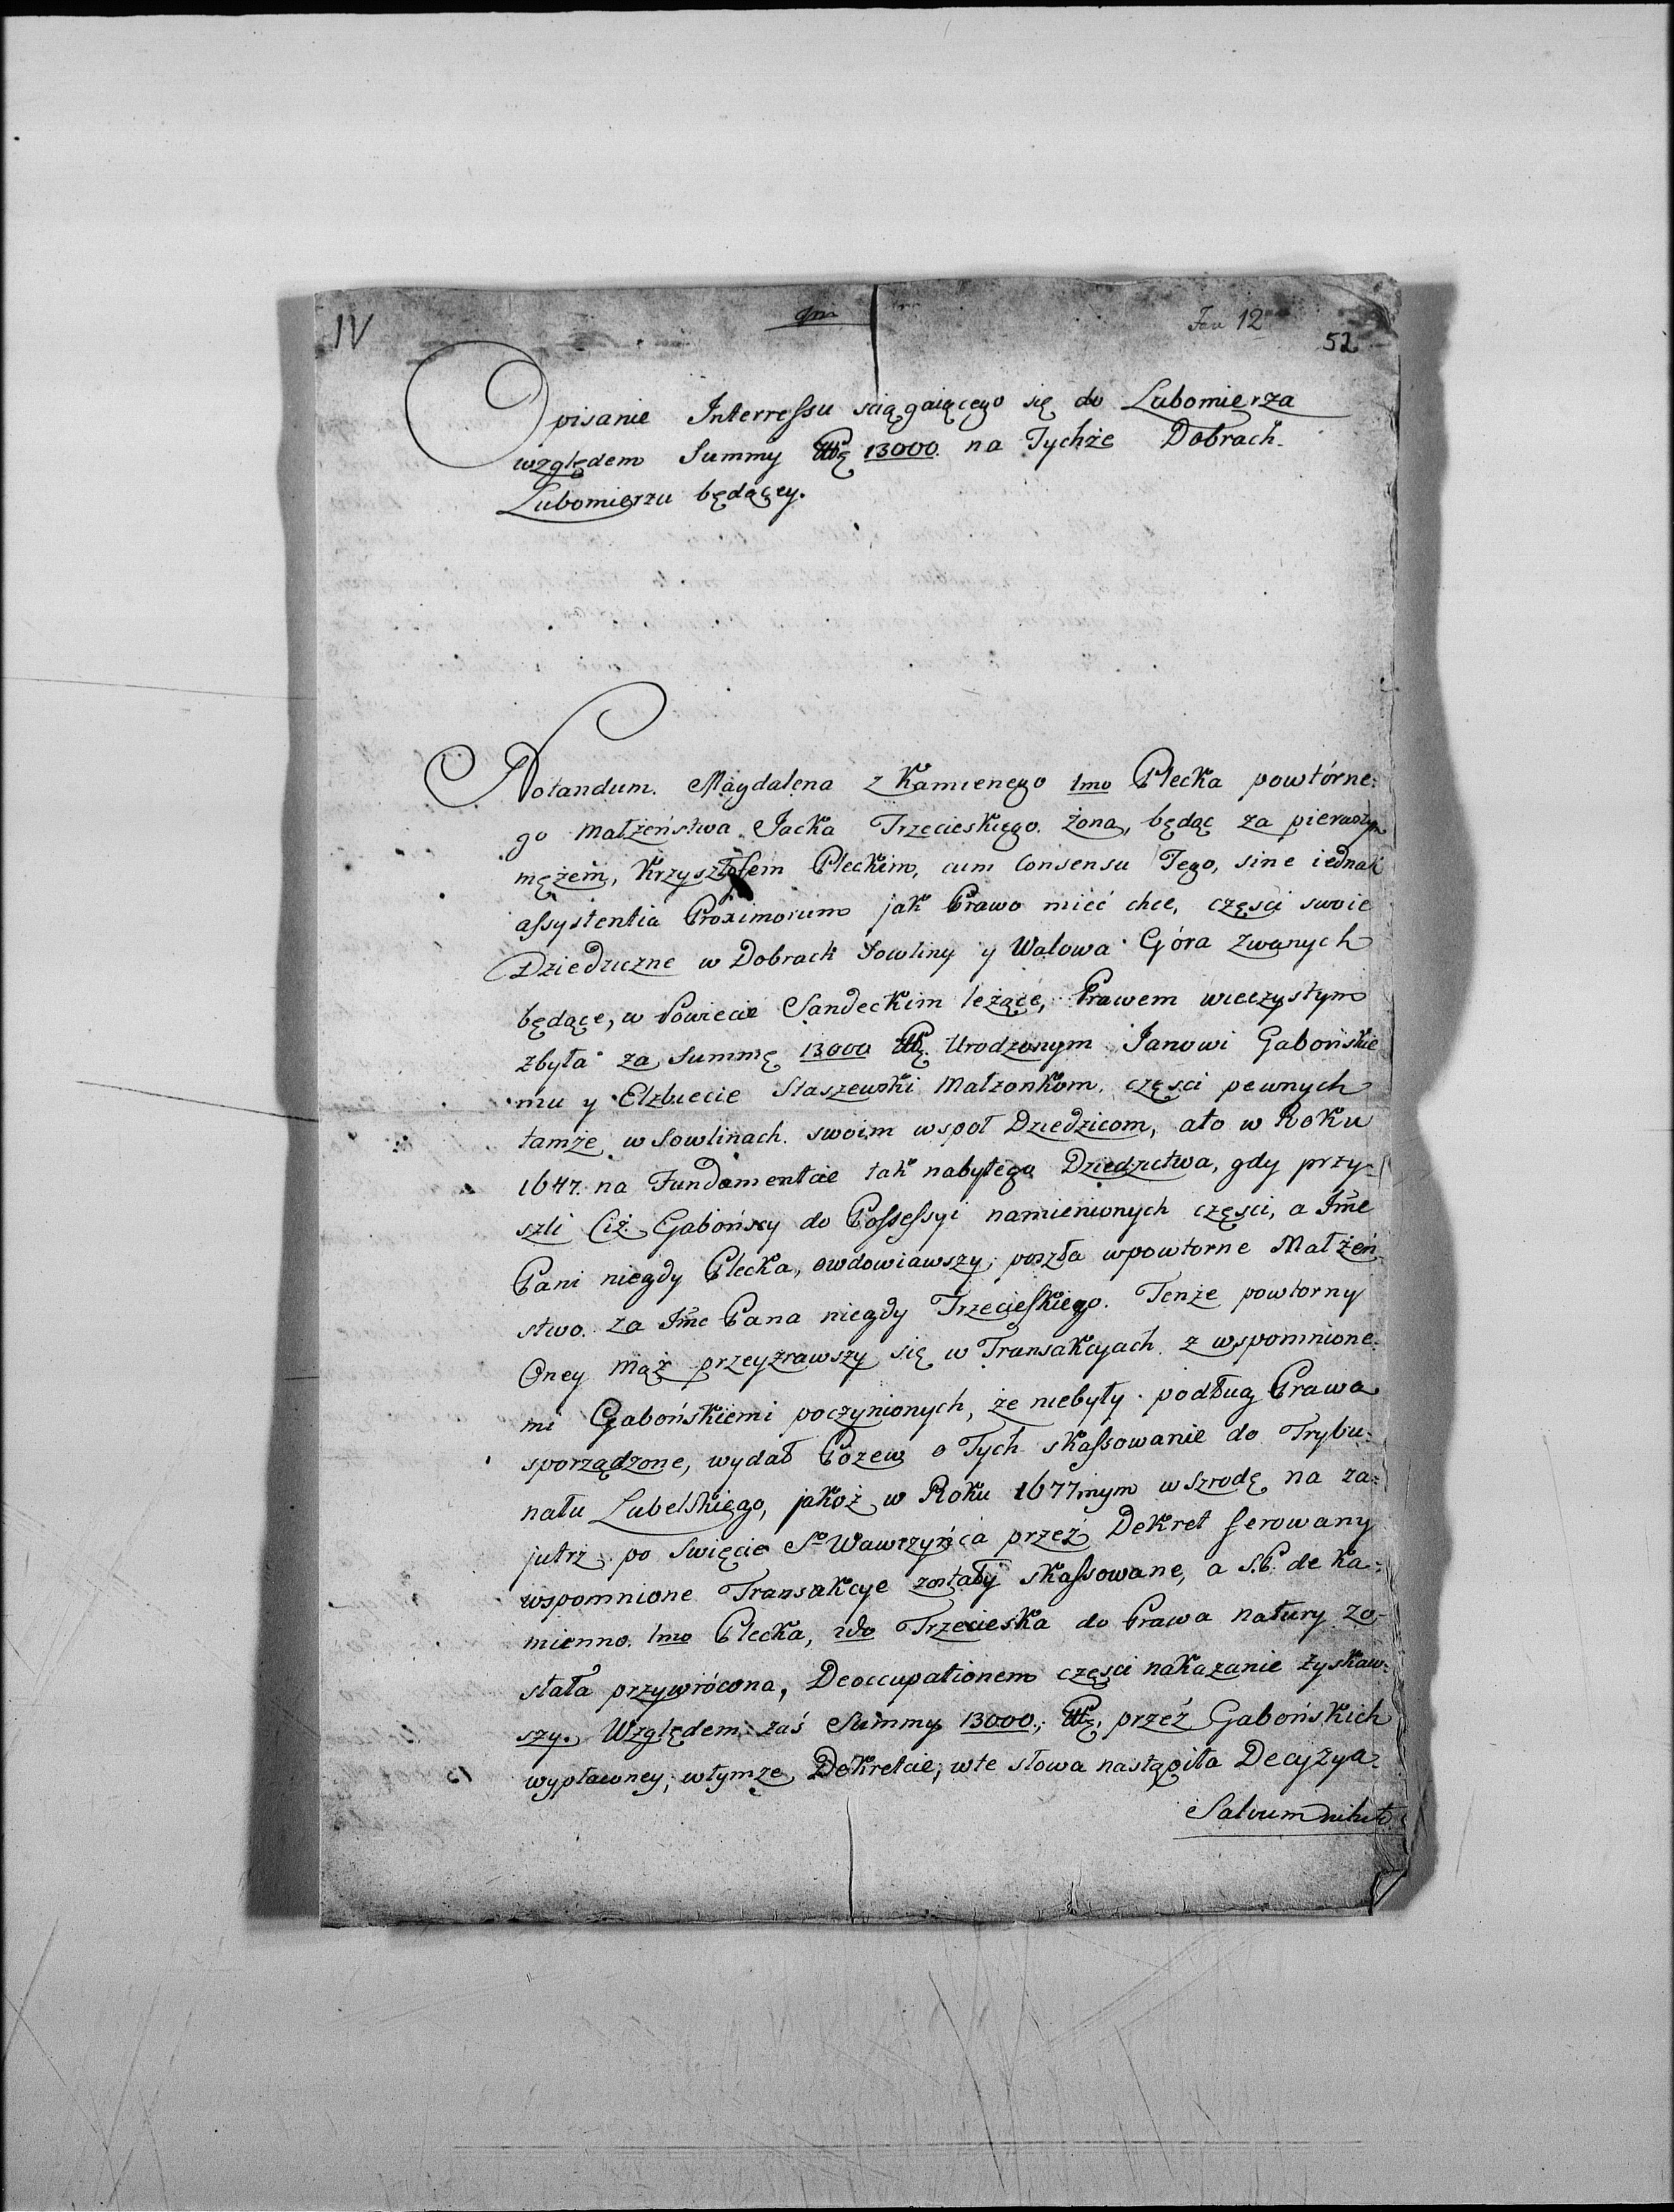 IV
12
52
Opisanie Interressu sciągaiącego się do Lubomierza
względem Summy 13000. na Tychże Dobrach
Lubomierzu będącey.
Notandum. Magdalena z Kamienego 1mo Plecka powtórne:
go małżeństwa Jacka Trzecieskiego żona, będąc za pierwszym
mężem, Krzysztofem Pleckim, cum Consensu Tego, sine iednak
assystentia Proximorum jak Prawo mieć chce, części swoie
Dziedziczne w Dobrach Sowliny y Walowa Góra zwanych
będące, w Powiecie Sandeckim leżące, Prawem wieczystym
zbyła za Summę 13000 Urodzonym Janowi Gabońskie
mu y Elzbiecie Staszewski Małzonkom, części pewnych
tamże w Sowlinach swoim wspoł Dziedzicom, ato w Roku
1647. na Fundamentcie tak nabytego Dziedzictwa, gdy przy-
szli Ciż Gabońscy do Possessyi namienionych części, a Jmć
Pani niegdy Plecka, owdowiawszy, poszła wpowtorne Małżeń-
stwo. za Jmć Pana niegdy Trzecieskiego. Tenże powtorny
Oney mąż przeyzrawszy się w Transakcyach z wspomnione:
mi Gabońskiemi poczynionych, że niebyły podług Prawa
sporządzone, wydał Pozew o Tych skassowanie do Trybu:
nału Lubelskiego, jakoż w Roku 1677mym w szrodę na za:
jutrz po Swięcie So Wawrzyńca przez Dekret ferowany
wspomnione Transakcye zostały skassowane, a S.P. de Ka:
mienno 1mo Plecka, 2do Trzecieska do Prawa natury zo-
stała przywrócona, Deoccupationem części nakazanie zyskaw:
szy. Względem zaś Summy 13000., przez Gabońskich
wypłaconey, wtymże Dekretcie, wte słowa nastąpiła Decyzya:
Salvum